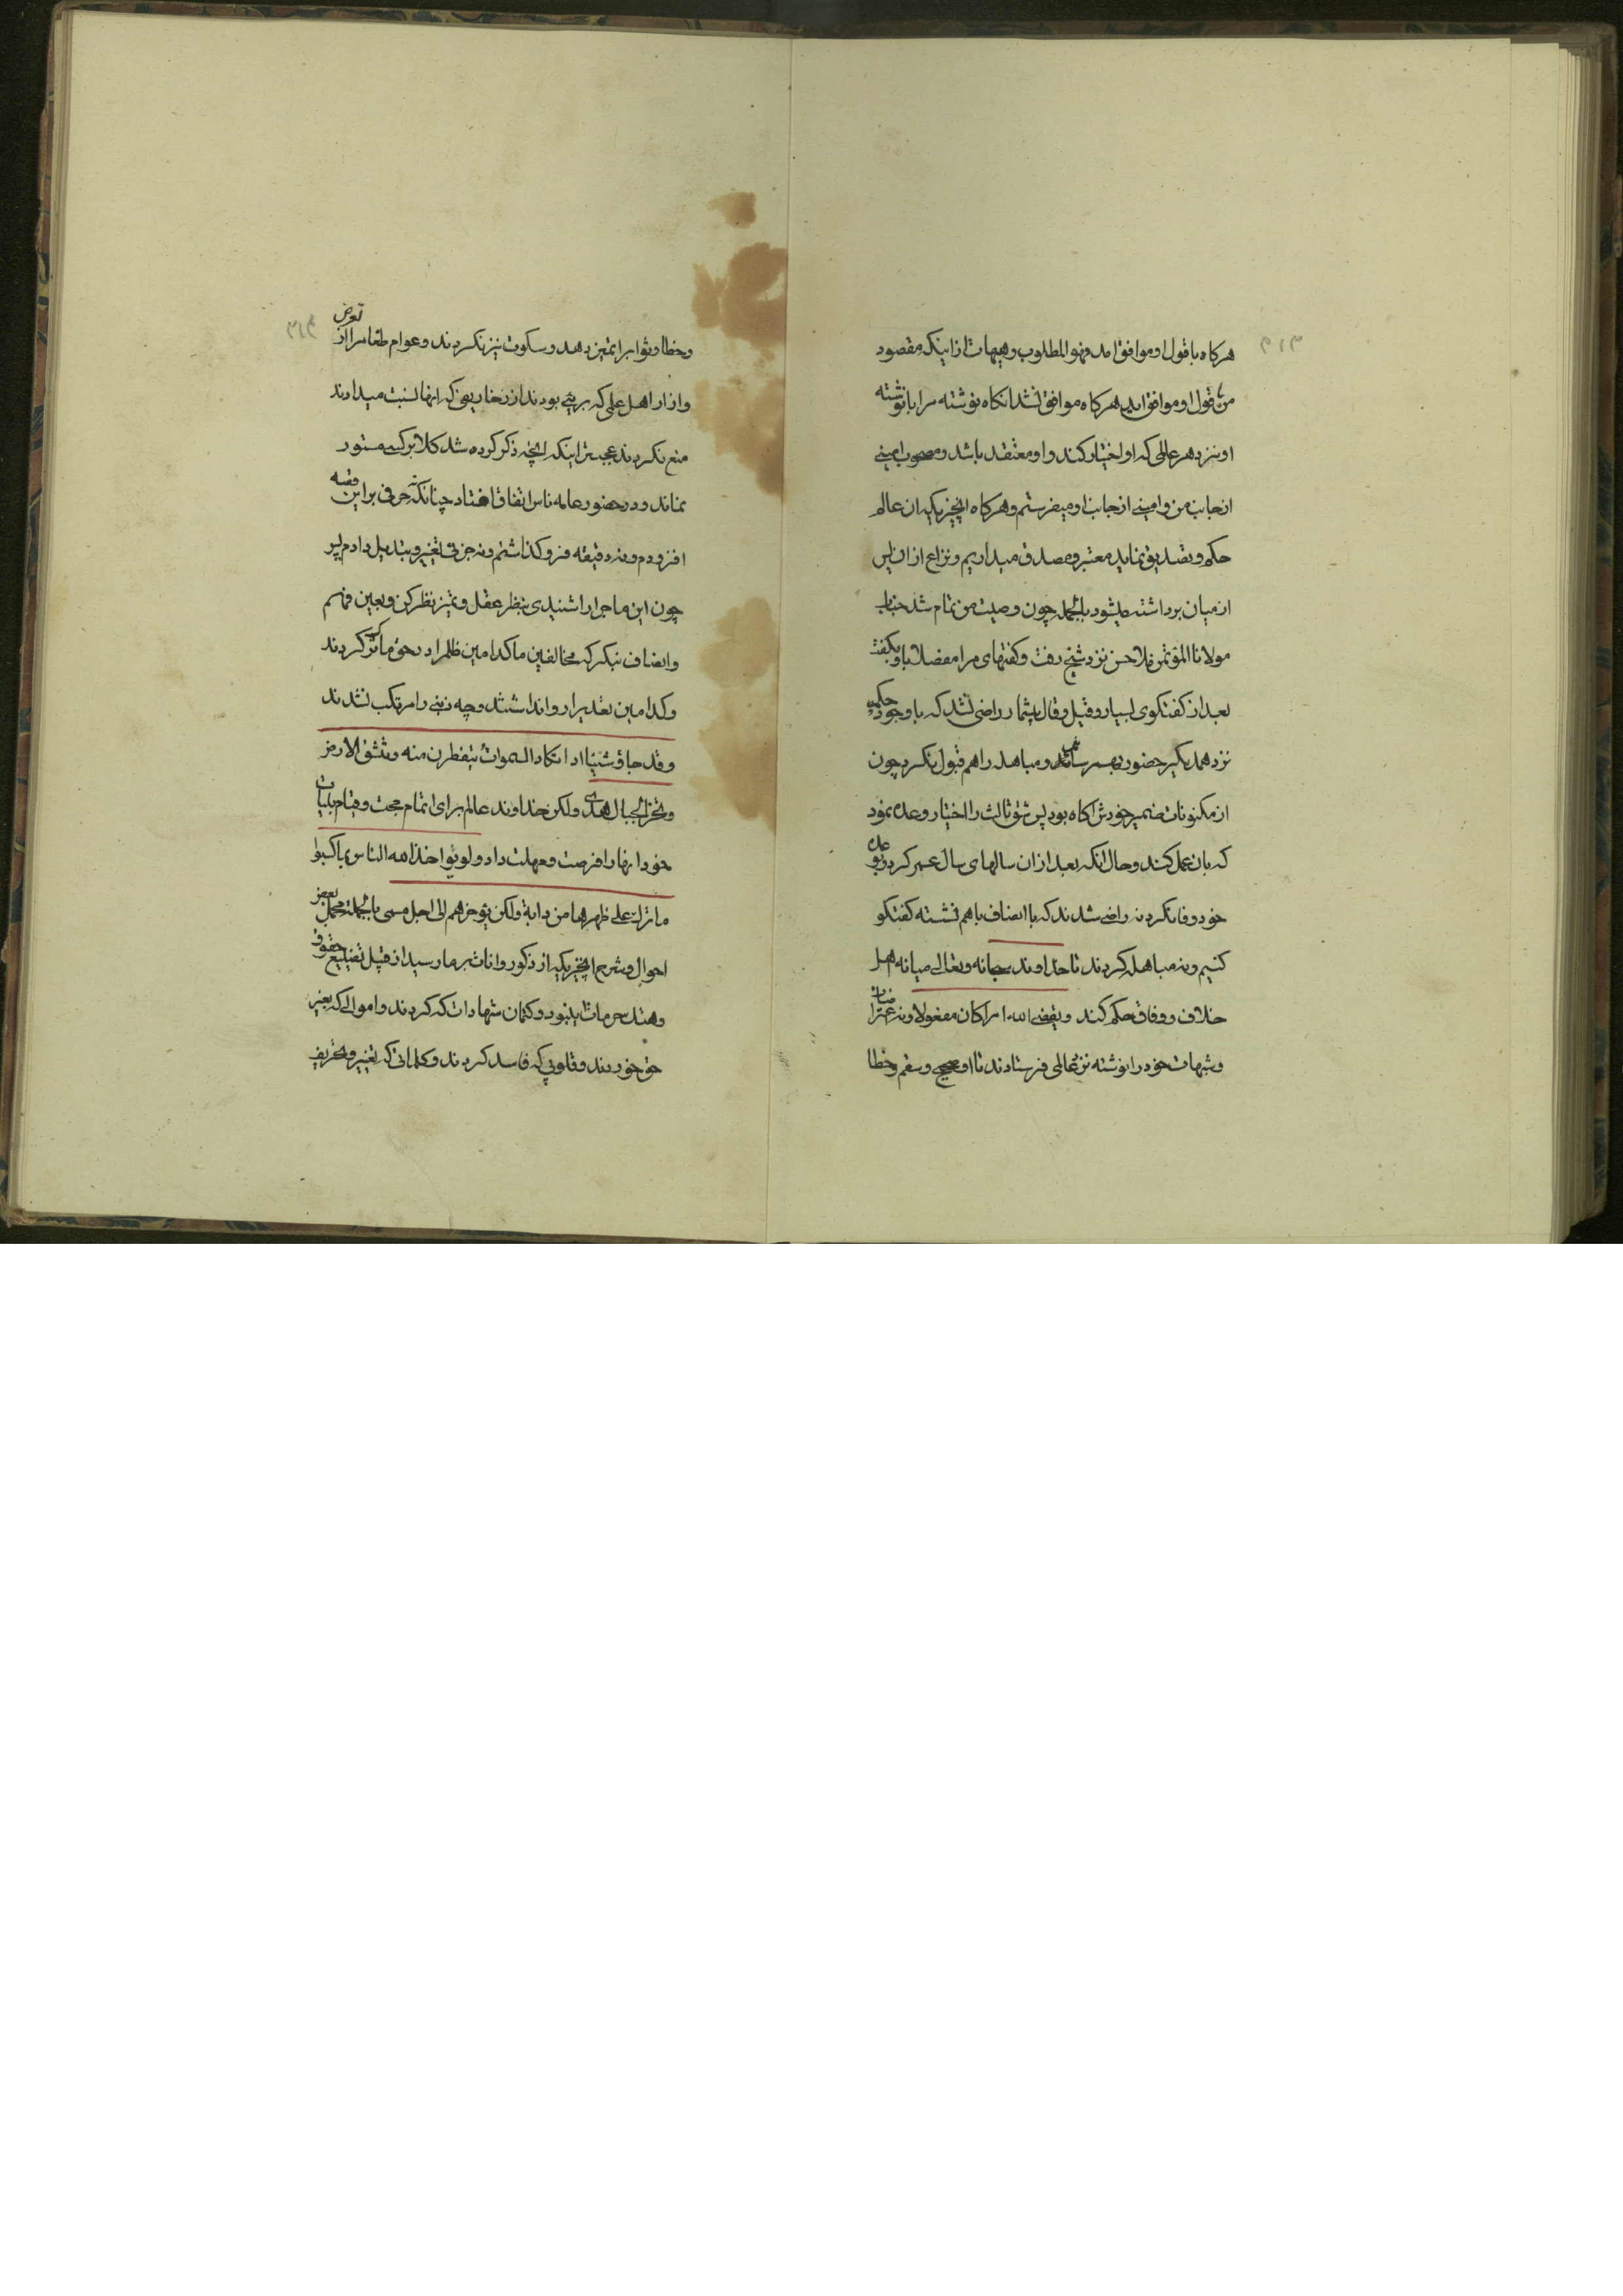 ۳۱۳
هرکاه با قول او موافق امد فهو المطلوب وهیهات از اینکه مقصود
من با قول او موافق اید هرکاه موافق نشد انکاه نوشته مرا با نوشته
او نزد هر عالمی که او اختیار کند و او معتقد باشد ومصحوب امینی
از جانب من و امینی از جانب او میفرستم و هرکاه انچیزیکه ان عالم
حکم و تصدیق نماید معتبر و مصدق میداریم ونزاع از ان پس
از میان برداشته میشود بالجمله چون وصیت من تمام شد جناب
مولانا المؤتمن ملاحسن نزد شیخ رفت وکفتهای مرا مفصلا باو بکفت
بعد از کفتکوی بسیار وقیل وقال بیشمار راضی نشد که با وجود حکمیه
نزد همدیکیر حضور بهم رسانند ومباهله را هم قبول نکرد چون
از مکنونات ضمیر خودش اکاه بود پس شق ثالث را اختیار وعده نمود
که بان عمل کند وحال انکه بعد از ان سالهای سال عمر کرد و بوعده
خود وفا نکرد نه راضی شدند که با انصاف باهم نشسته کفتکو
کنیم ونه مباهله کردند تا خداوند سبحانه وتعالی میانه اهل
خلاف و وفاق حکم کند ویقضی الله امرا کان مفعولا ونه
وشبهات خود را نوشته نزد عالمی فرستادند تا او صحیح وسقم وخطا
۳۱۴
وخطا وثواب را تمیز دهد وسکوت نیز نکردند وعوام طغام را از تعرض
وازار اهل علمی که بریئی بودند از زخاریفی که انها نسبت میدادند
منع نکردند عجبتر اینکه انچه ذکر کرده شد کلا بر کسی مستور
نماند ودر حضور عامه ناس اتفاق افتاد چنانکه نه حرفی بر این قصه
افزودم ونه دقیقه فرو کذاشتم ونه جزئی تغییر وتبدیل دادم پس
چون این ماجرا را شنیدی بنظر عقل وتمیز نظر کن وبعین فهم
وانصاف بنکر که مخالفین ما کدامین ظلم را در حق ما ترک کردند
وکدامین تعدیرا روا نداشتند وچه ذنبی را مرتکب نشدند
وقد جاؤ شیئا ادا تکاد السموات یتفطرن منه وتنشق الارض
وتخر الجبال هدا ولکن خداوند عالم برای اتمام حجت وقیام بینات
خود انها را فرصت ومهلت داد ولو یؤاخذ الله الناس بما کسبوا
ما ترک علی ظهرها من دابة ولکن یؤخرهم الی اجل مسمی بالجمله مجمل بعض
احوال وشرح انچیزیکه از ذکور واناث بر ما رسید از قبیل تضییع حقوق
وهتک حرمات این بود وکتمان شهادات که کردند واموالی که بغیر
حق خوردند وقلوبی که فاسد کردند وکلماتی که تغییر وتحریف